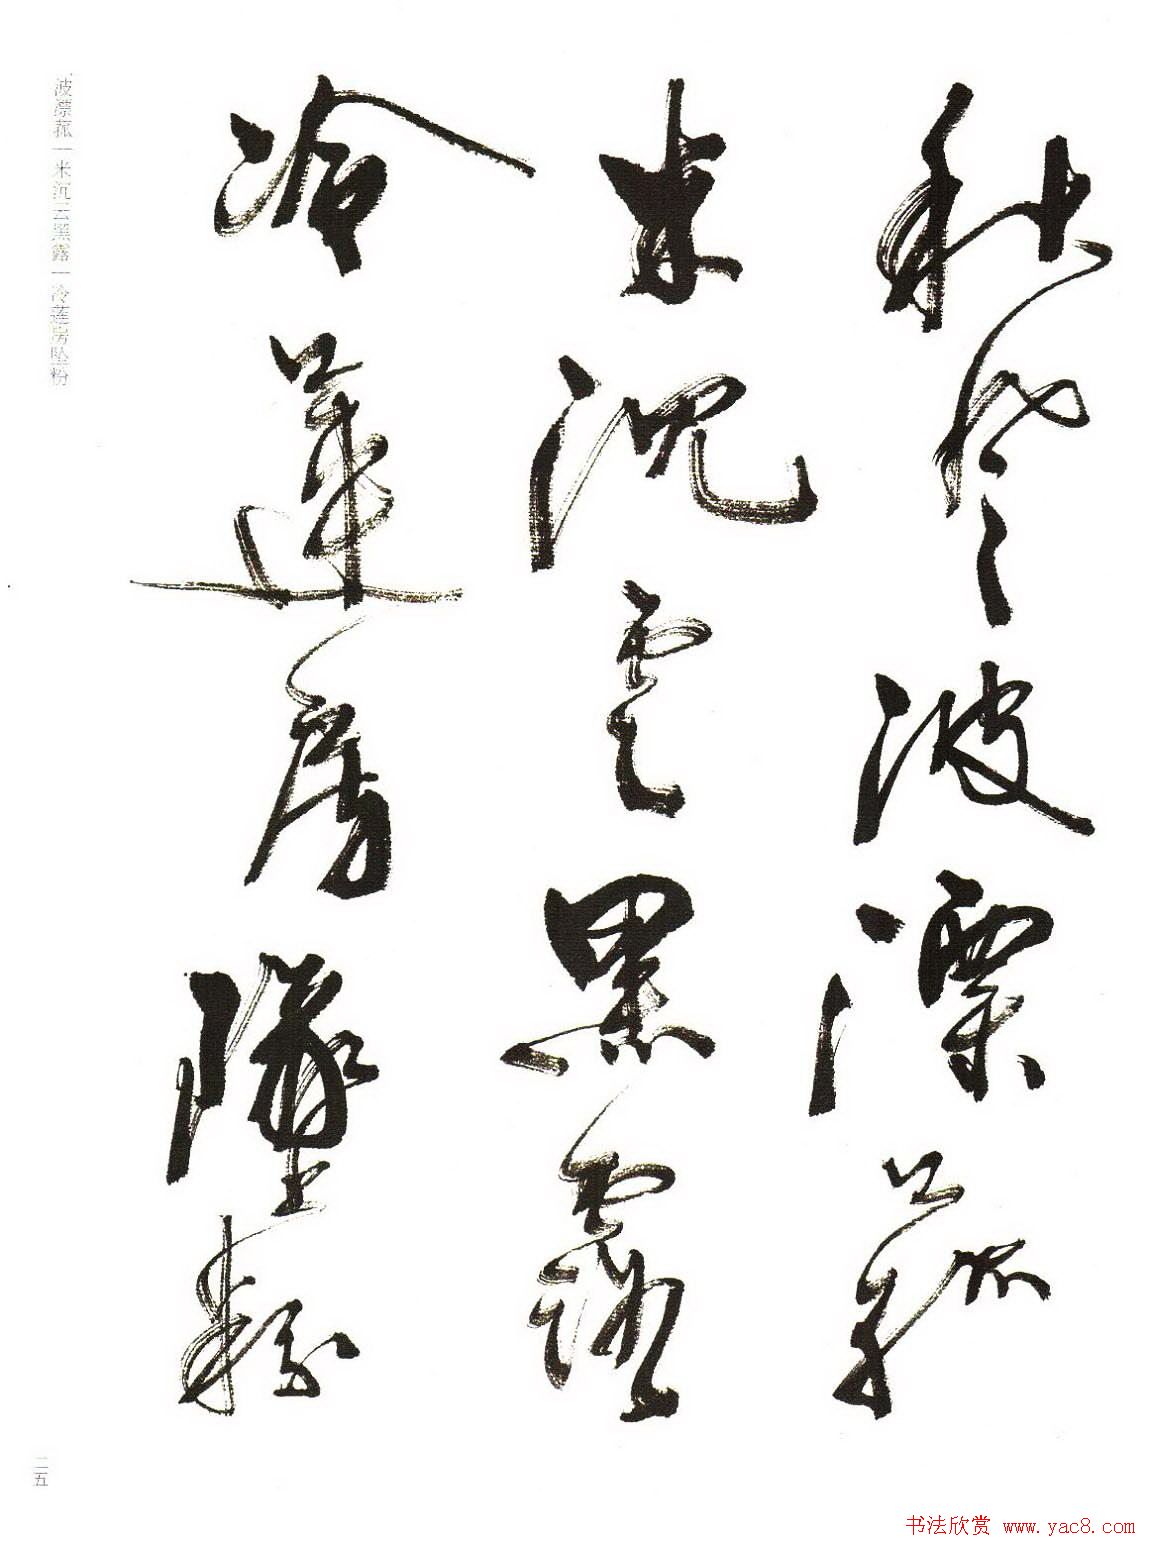 秋風波漂菰
米沉雲黑露
冷蓮房墜粉
波漂菰|米沉云黑露|冷莲房坠粉
二五
书法欣赏 www.yac8.com